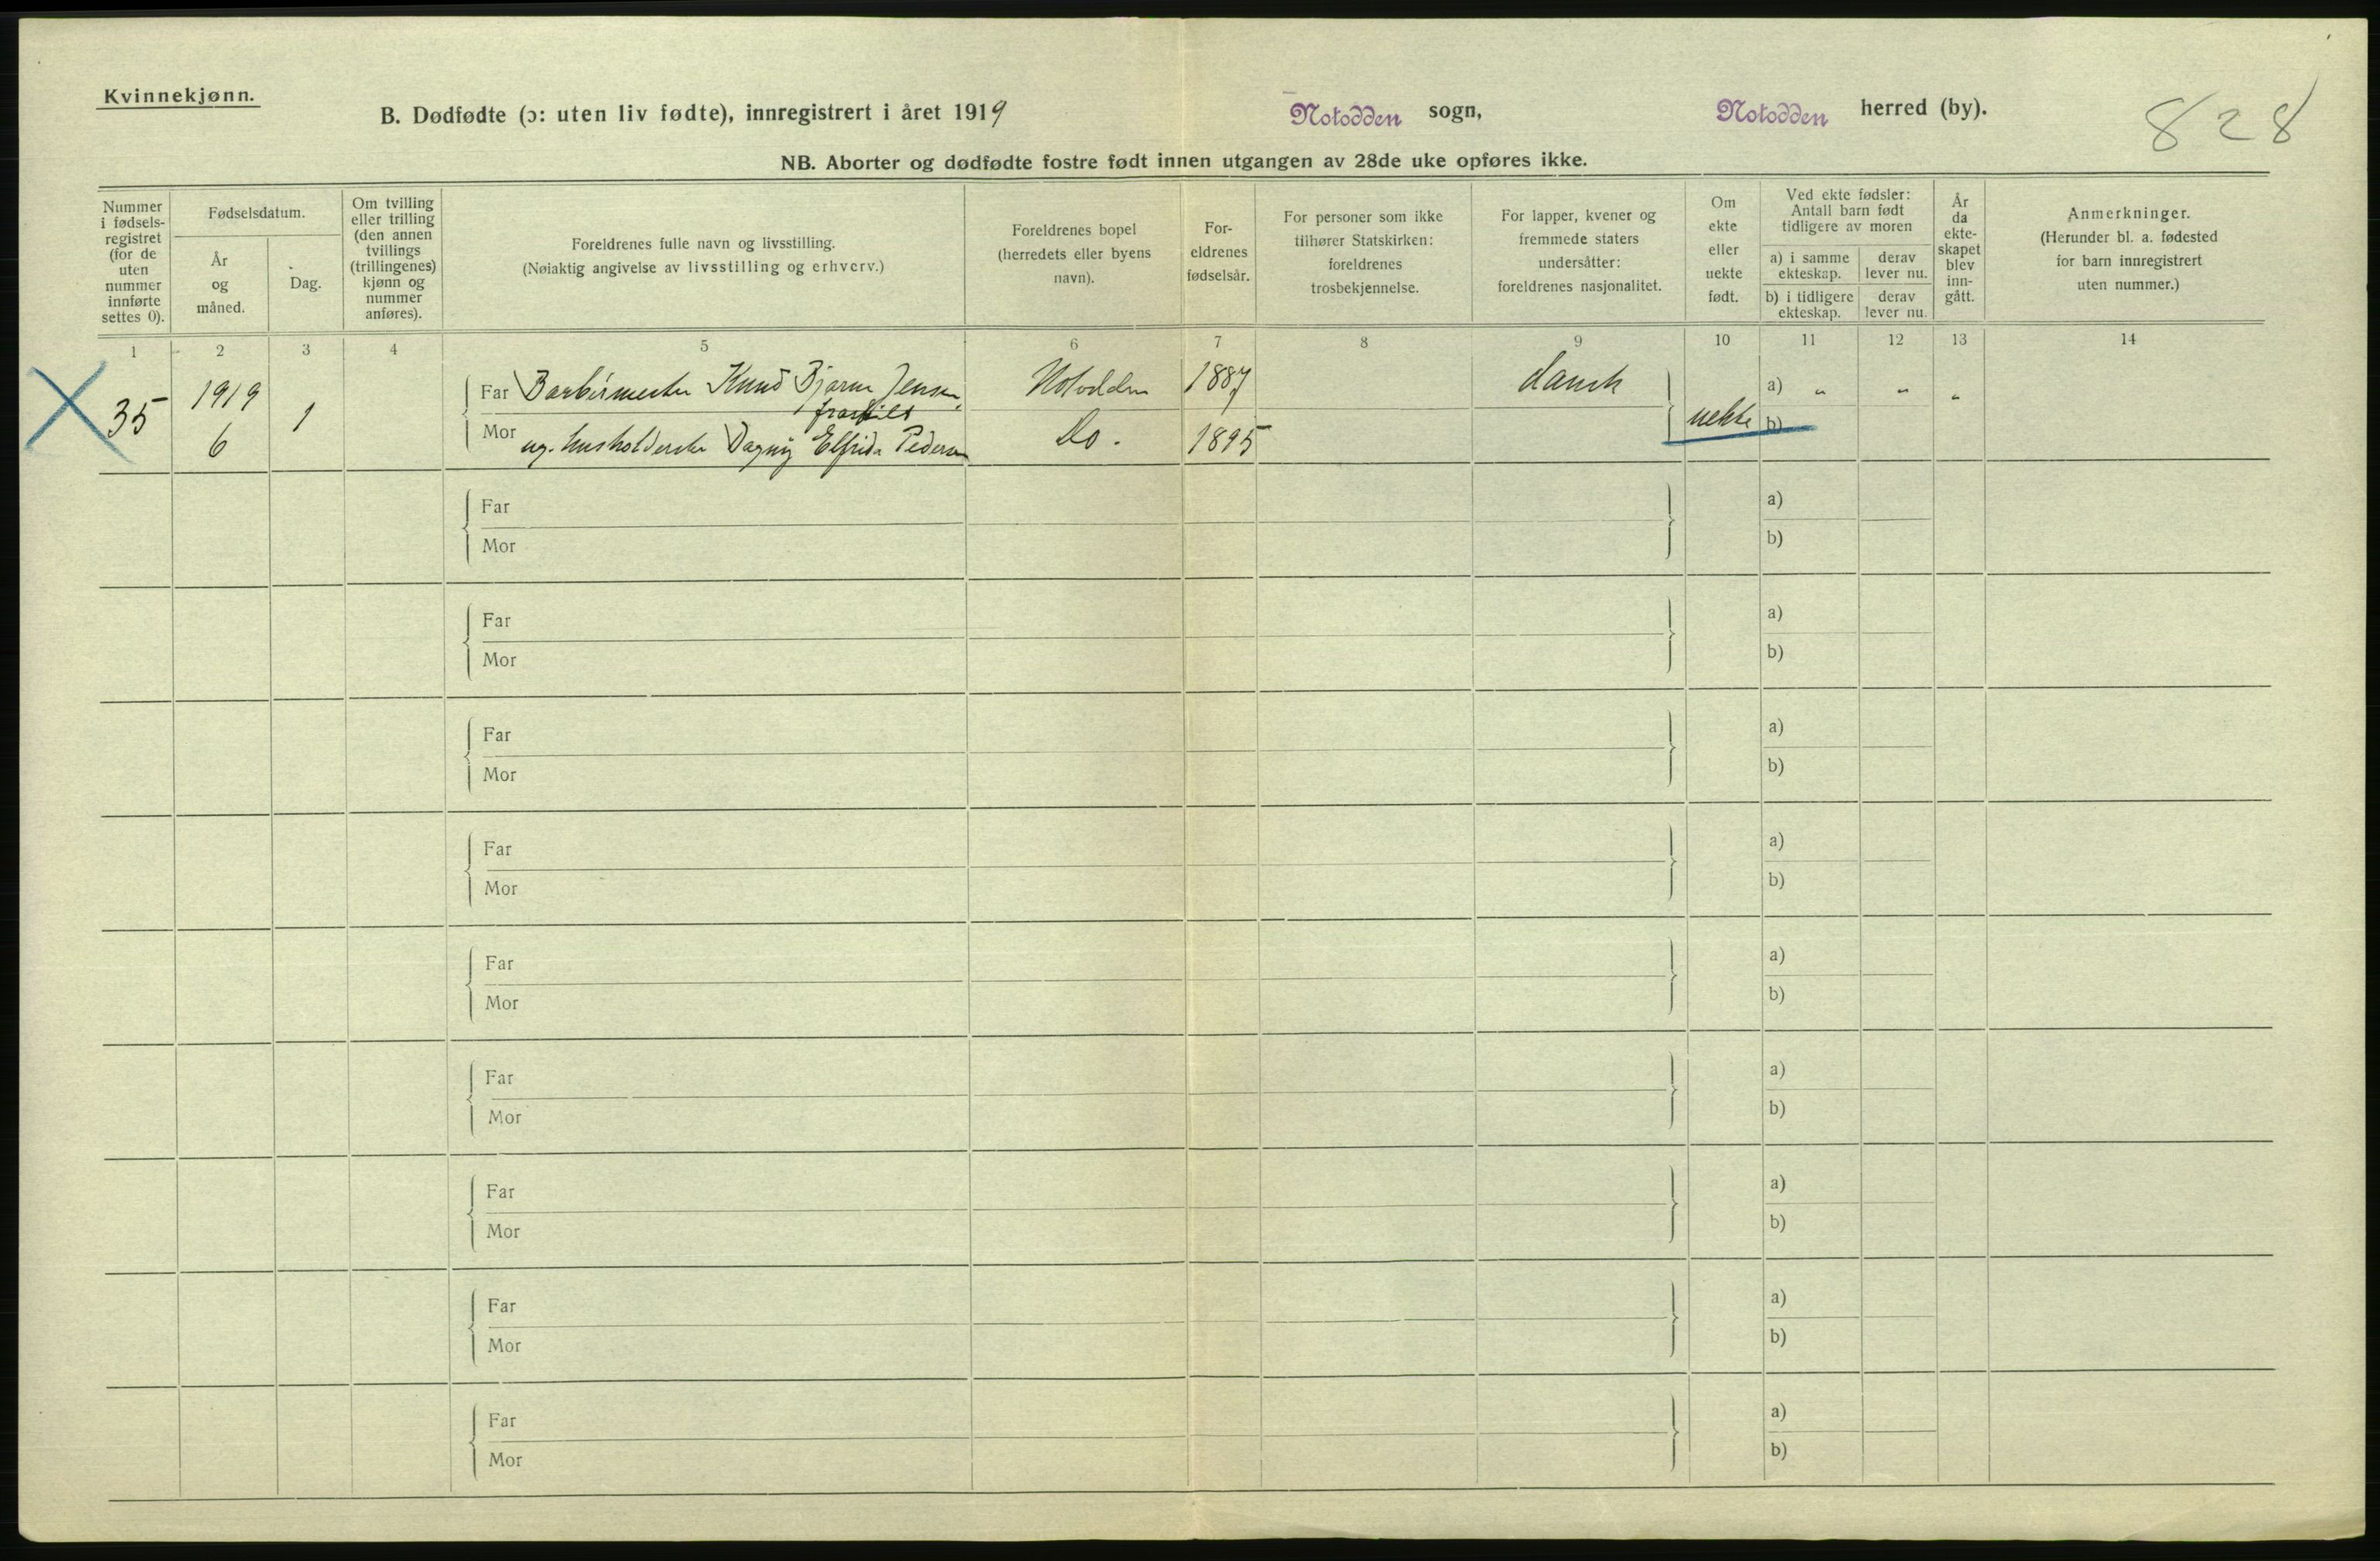 Kvinnekjønn.
B. Dødfødte (ɔ: uten liv fødte), innregistrert i året 1919 Notodden sogn, Notodden herred (by). 828
NB. Aborter og dødfødte fostre født innen utgangen av 28de uke opføres ikke.
Nummer i fødsels-registret (for de uten nummer innførte settes 0).
Fødselsdatum.
År og måned.
Dag.
Om tvilling eller trilling (den annen tvillings (trillingenes) kjønn og nummer anføres).
Foreldrenes fulle navn og livsstilling.
(Nøiaktig angivelse av livsstilling og erhverv.)
Foreldrenes bopel (herredets eller byens navn).
For-eldrenes fødselsår.
For personer som ikke tilhører Statskirken: foreldrenes trosbekjennelse.
For lapper, kvener og fremmede staters undersåtter: foreldrenes nasjonalitet.
Om ekte eller uekte født.
Ved ekte fødsler: Antall barn født tidligere av moren
a) i samme ekteskap.
derav lever nu.
b) i tidligere ekteskap.
derav lever nu.
År da ekte-skapet blev inn-gått.
Anmerkninger.
(Herunder bl. a. fødested for barn innregistrert uten nummer.)
1 2 3 4 5 6 7 8 9 10 11 12 13 14
35 1919 6 1
Far Barbermester Knud Bjarne Jensen, fraskilt Notodden 1887 dansk
Mor ug. husholderske Dagny Elfrida Pedersen Do. 1895 uekte
a) " " "
b)
Far a)
Mor b)
Far a)
Mor b)
Far a)
Mor b)
Far a)
Mor b)
Far a)
Mor b)
Far a)
Mor b)
Far a)
Mor b)
Far a)
Mor b)
Far a)
Mor b)